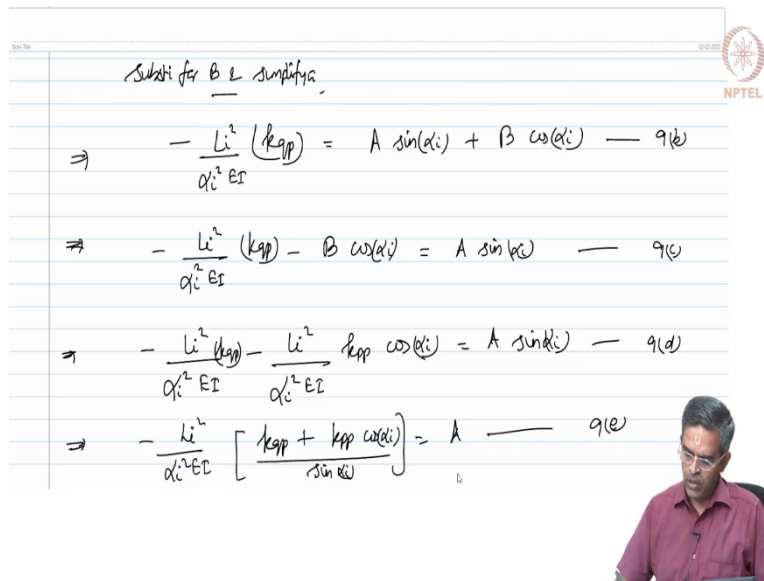 Note Title
NPTEL
Substi for B & simplifying
⇒ - Li² / αi² EI (kqp) = A sin(αi) + B cos(αi) — 9(b)
⇒ - Li² / αi² EI (kqp) - B cos(αi) = A sin(αi) — 9(c)
⇒ - Li² / αi² EI (kqp) - Li² / αi² EI kpp cos(αi) = A sin(αi) — 9(d)
⇒ - Li² / αi² EI [ kqp + kpp cos(αi) / sin αi ] = A — 9(e)